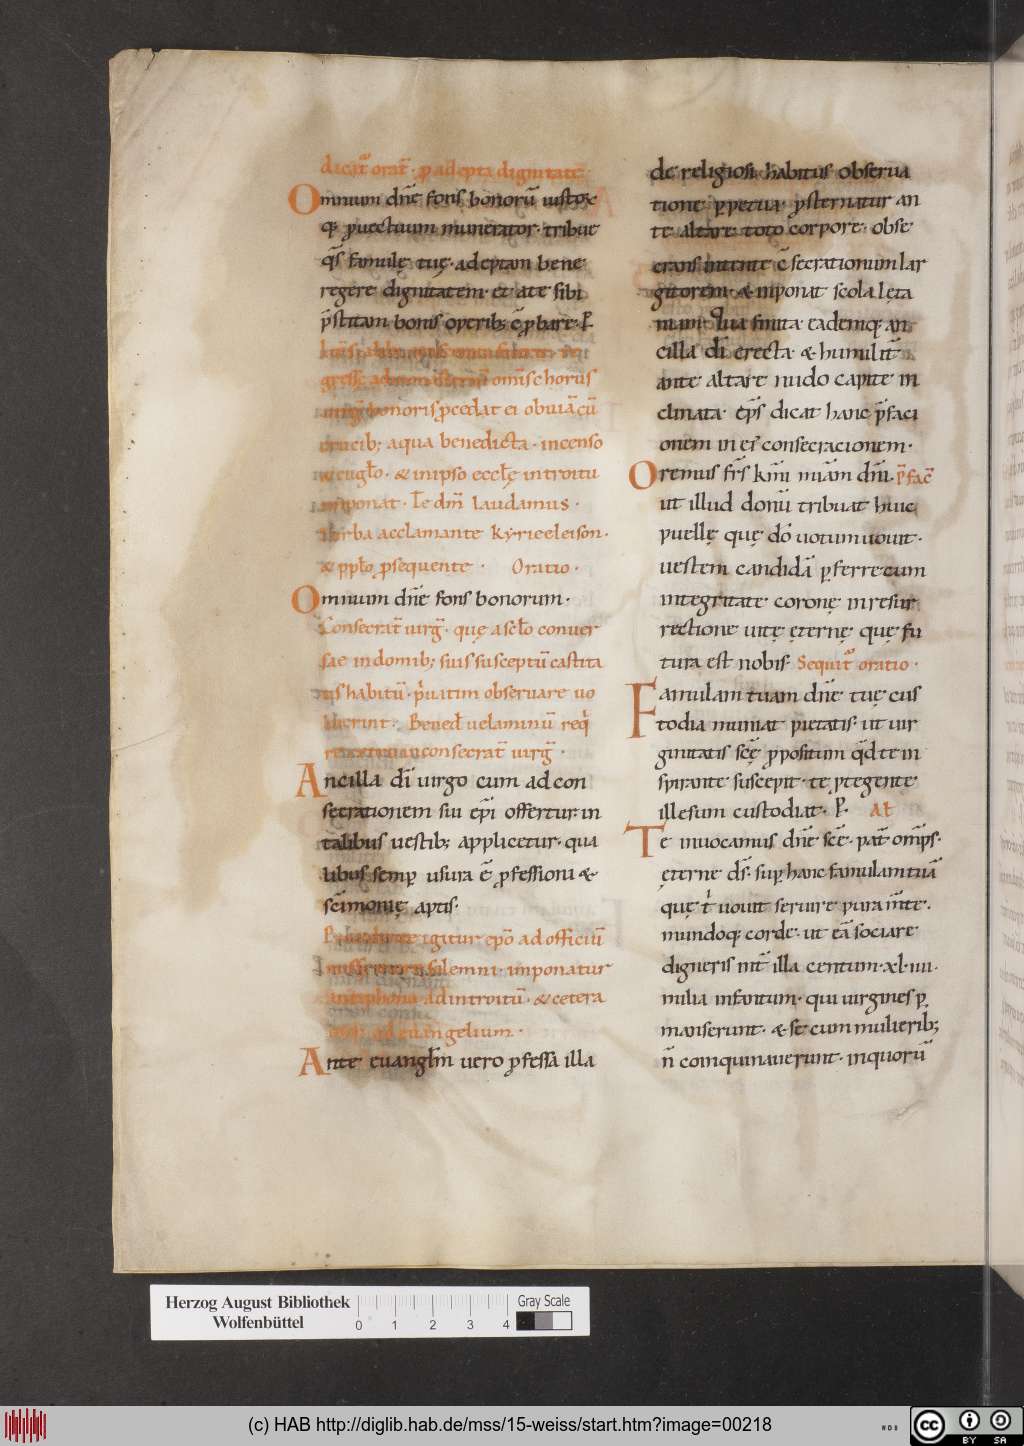 dicat orat̄ · ꝓ adepta dignitate ·
Omnium dn̄e fons bonorū iustoꝝ
q; ꝓuectuum munerator · tribue
q̄s famulę tuę · adeptam bene
regere dignitatem · et a te sibi
p̄stitam bonis operib; cōꝓbare · P̲
gressę
omīs chorus
uirḡ honoris ꝓcedat ei obuiā cū
crucib; aqua benedicta · incenso
eugl̄o · & in ipso eccl̄ę introitu
inponat · Te dm̄ laudamus ·
turba acclamante kyrieeleison ·
& ppl̄o ꝓsequente · Oratio ·
Omnium dn̄e fons bonorum ·
Consecrat̄ uirḡ · quę a scl̄o conuer
sae in domib; suis susceptū castita
tis habitū · p̄uatim obseruare uo
luerint · Bened̄ uelaminū req̄
consecrat̄ uirḡ ·
Ancilla dī uirgo cum ad con
secrationem sui ep̄i offertur in
talibus uestib; applicetur · qua
libus semꝑ usura ē ꝓfessioni &
scīmonię aptis ·
igitur ep̄o ad officiū
missę solemni · imponatur
antiphona ad introitū · & cetera
usq; ad euangelium ·
Ante euangl̄m uero ꝓfessa illa
de religiosi habitus obserua
tione ꝑpetua · ꝓsternatur an
te altare toto corpore · obse
crans intente c̄secrationum lar
gitorem · & inponat scola lęta
niam · Qua finita eademq; an
cilla dī erecta & humilit̄
ante altare nudo capite in
clinata · ep̄s dicat hanc p̄faci
onem in ei' consecracionem ·
Oremus fr̄s km̄i miām dn̄i · p̄fac̄
ut illud donū tribuat huic
puellę quę dō uotum uouit ·
uestem candidā ꝑferre cum
integritate coronę in resur
rectione uitę ęternę quę fu
tura est nobis Sequit̄ oratio ·
Famulam tuam dn̄e tuę cus
todia muniat pietatis · ut uir
ginitatis scę̄ ꝓpositum qd̄ te in
spirante suscepit · te ꝓtegente
illesum custodiat · P̲. At
Te inuocamus dn̄e scē · pat̄ omp̄s ·
ęterne ds̄ · suꝑ hanc famulam tuā
quę t' uouit seruire pura m̄te ·
mundoq; corde · ut eā sociare
digneris int̄ illa centum · xl · iiii ·
milia infantum · qui uirgines ꝑ
manserunt · & se cum mulierib;
n̄ coinquinauerunt · in quorū
Herzog August Bibliothek
Wolfenbüttel
0 1 2 3 4
Gray Scale
(c) HAB http://diglib.hab.de/mss/15-weiss/start.htm?image=00218
cc BY SA